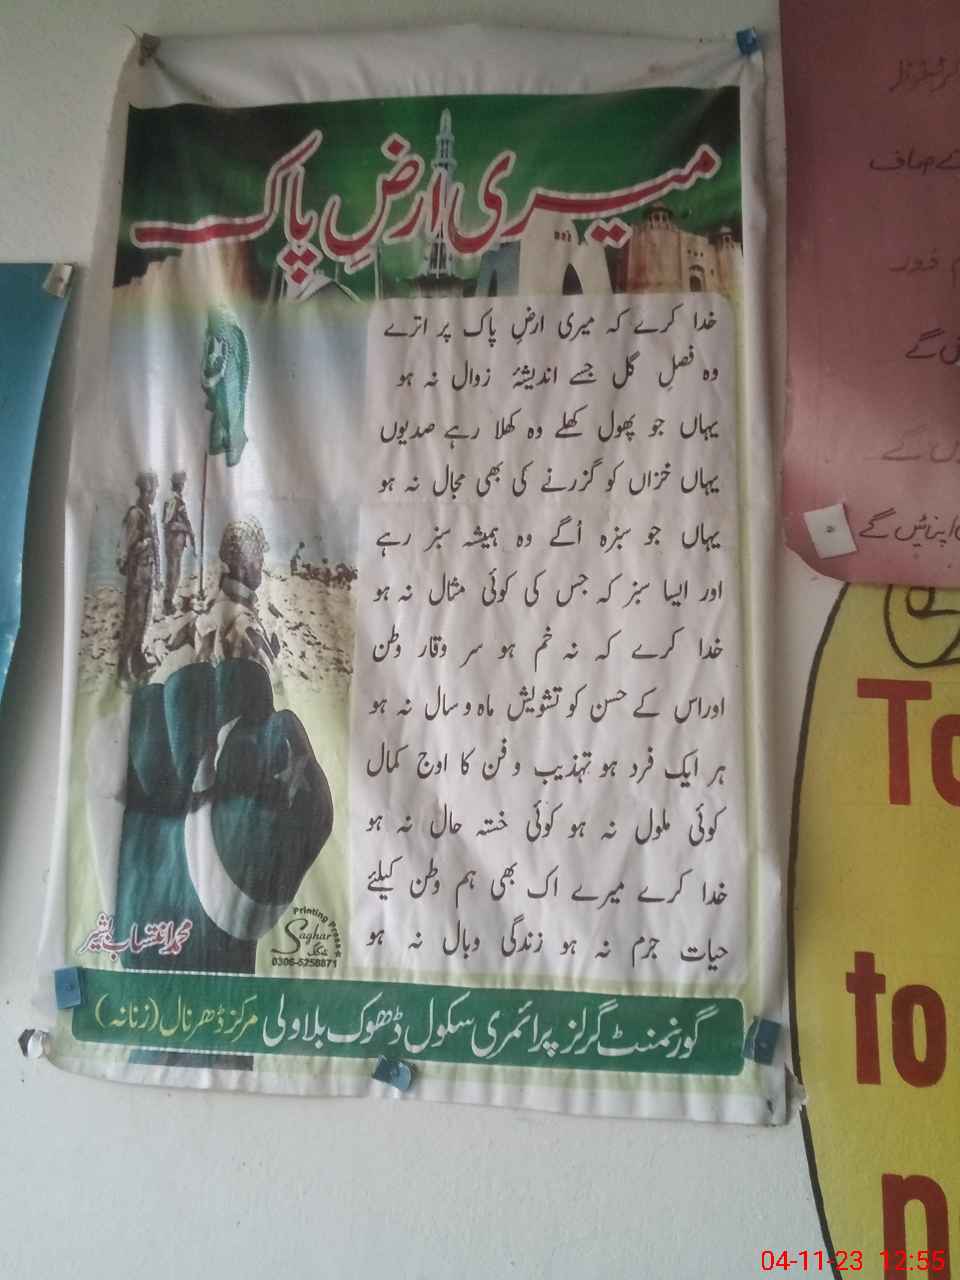 میری ارضِ پاک
خدا کرے کہ میری ارضِ پاک پر اترے
وہ فصلِ گل جسے اندیشۂ زوال نہ ہو
یہاں جو پھول کھلے وہ کھلا رہے صدیوں
یہاں خزاں کو گزرنے کی بھی مجال نہ ہو
یہاں جو سبزہ اُگے وہ ہمیشہ سبز رہے
اور ایسا سبز کہ جس کی کوئی مثال نہ ہو
خدا کرے کہ نہ خم ہو سر وقار وطن
اوراس کے حسن کو تشویش ماہ و سال نہ ہو
ہر ایک فرد ہو تہذیب و فن کا اوج کمال
کوئی ملول نہ ہو کوئی خستہ حال نہ ہو
خدا کرے میرے اک بھی ہم وطن کیلئے
حیات جرم نہ ہو زندگی وبال نہ ہو
محمد انتساب بشیر
Printing Press
Saghar
0306-5258871
گورنمنٹ گرلز پرائمری سکول ڈھوک بلاولی مرکز ڈھرنال (زنانہ)
صاف
گے
کے
اپنائیں گے
To
to
04-11-23 12:55